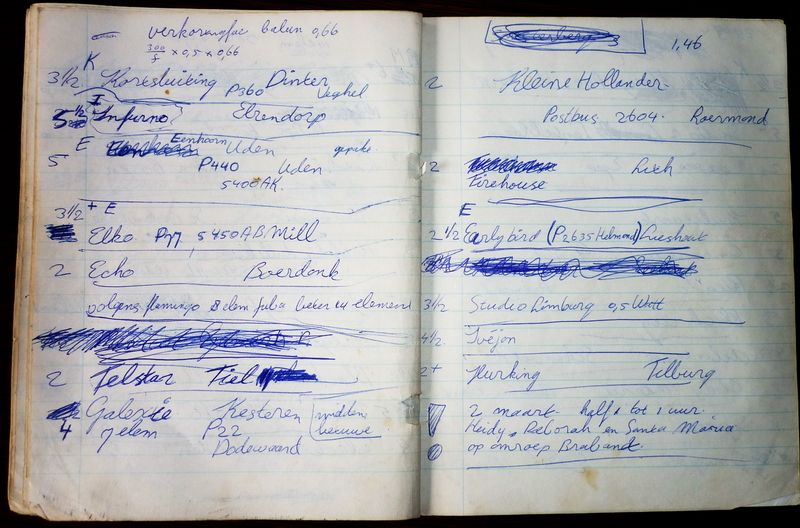 verkorengfac balun 0,66
300/f x 0,5 x 0,66
K
3 1/2 Kortsluiting Dinter
P360 Veghel
I
5 1/2 Inferno Elzendorp
E Eenhoorn Uden
5 P440 Uden
5400AK.
3 1/2 + E
Elko P77 5450AB Mill
2 Echo Boerdonk
volgens flamingo 8 elem fuba beker 14 element
2 Telstar Tiel
Galexie Kesteren midden
4 7 elem P22 betuwe
Dodewaard
3 1,46
2 Kleine Hollander
Postbus 2604. Roermond
2 Lieh
Firehouse
E
2 1/2 Earlybird (P2635 Helmond) Lieshout
3 1/2 Studio Limburg 0,5 Watt
4 1/2 Tvéjon
2+ Nurking Tilburg
2 maart half 1 tot 1 uur.
Heidy, Deborah en Santa Maria
op omroep Braband.